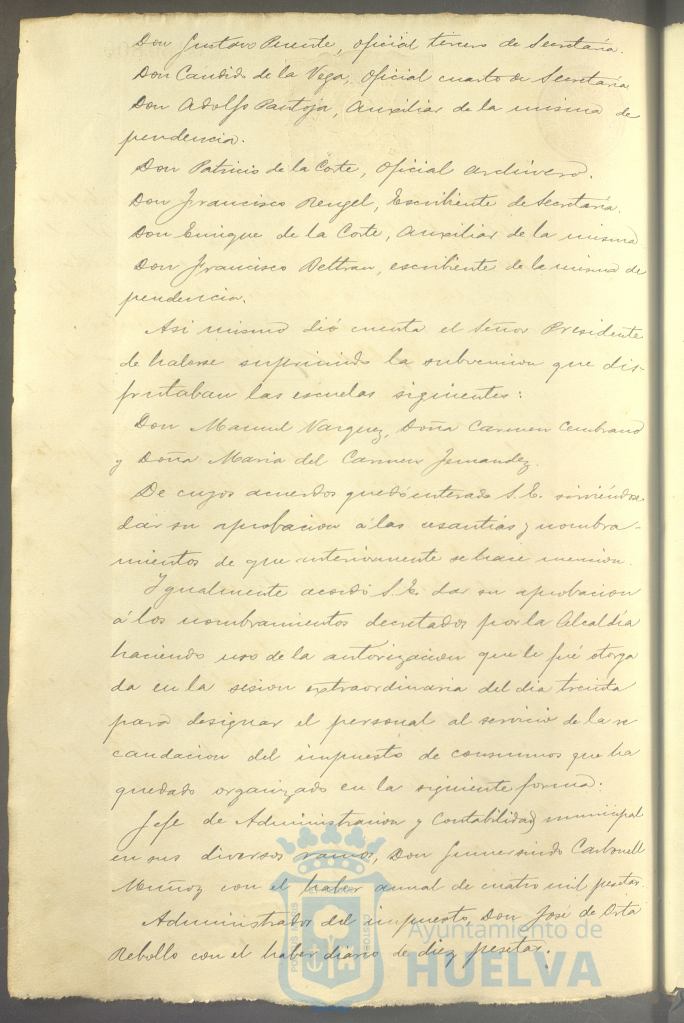 Don Gustavo Puente, oficial tercero de Secretaría.
Don Candido de la Vega, Oficial cuarto de Secretaría
Don Adolfo Pantoja, Auxiliar de la misma de
pendencia.
Don Patricio de la Corte, Oficial archivero.
Don Francisco Rengel, Escribiente de Secretaría.
Don Enrique de la Corte, Auxiliar de la misma
Don Francisco Beltran, escribiente de la misma de
pendencia.
Asi mismo dió cuenta el Señor Presidente
de haberse suprimido la subvencion que dis-
frutaban las escuelas siguientes:
Don Manuel Vazquez, Doña Carmen Cembrano
y Doña Maria del Carmen Fernandez.
De cuyos acuerdos quedó enterado S. E. sirviéndose
dar su aprobacion á las cesantias y nombra-
mientos de que anteriormente se hace mencion.
Igualmente acordó S. E. dar su aprobacion
á los nombramientos decretados por la Alcaldía
haciendo uso de la autorizacion que le fué otorga
da en la sesion extraordinaria del dia treinta
para designar el personal al servicio de la re
caudacion del impuesto de consumos que ha
quedado organizado en la siguiente forma:
Jefe de Administracion y Contabilidad municipal
en sus diversos ramos, Don Gumersindo Carbonell
Muñoz con el haber anual de cuatro mil pesetas.
Administrador del impuesto Don José de Orta
Rebollo con el haber diario de diez pesetas.
Ayuntamiento de
HUELVA